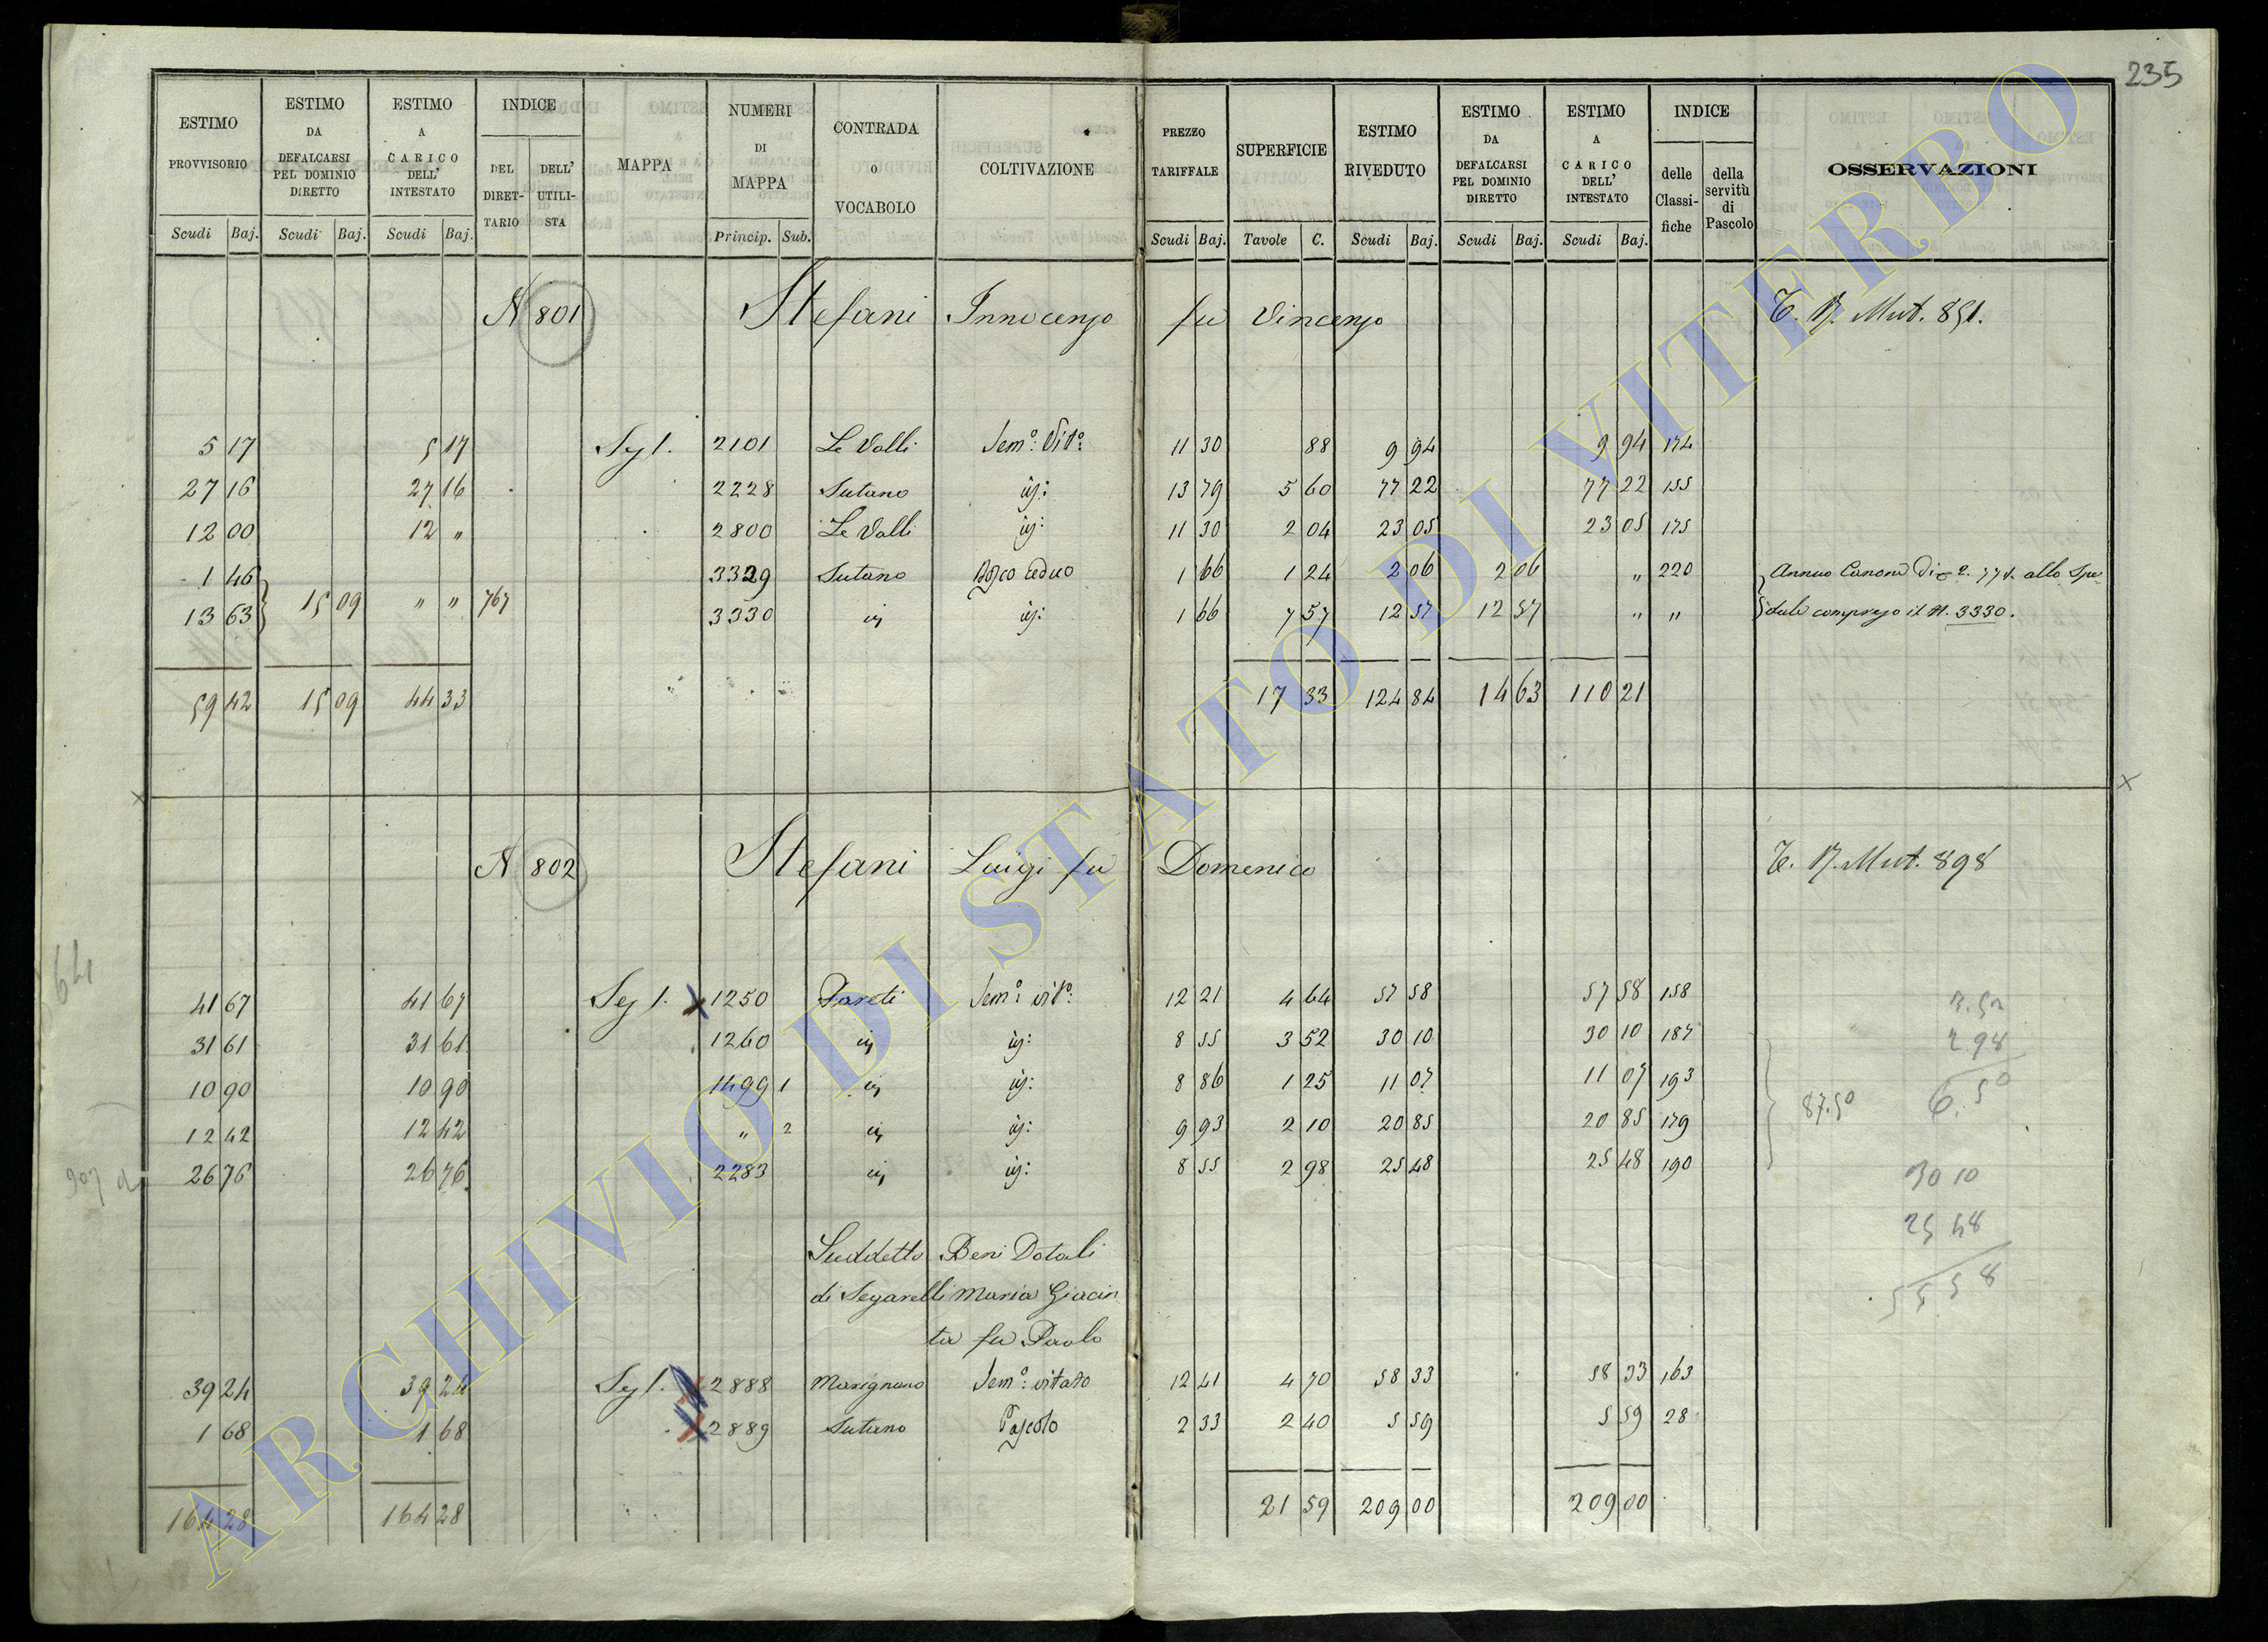 235
ESTIMO PROVVISORIO | ESTIMO DA DEFALCARSI PEL DOMINIO DIRETTO | ESTIMO A CARICO DELL' INTESTATO | INDICE DEL DIRETTARIO | DELL' UTILISTA | MAPPA | NUMERI DI MAPPA | CONTRADA O VOCABOLO | COLTIVAZIONE | PREZZO TARIFFALE | SUPERFICIE | ESTIMO RIVEDUTO | ESTIMO DA DEFALCARSI PEL DOMINIO DIRETTO | ESTIMO A CARICO DELL' INTESTATO | INDICE delle Classifiche | della servitù di Pascolo | OSSERVAZIONI
Scudi Baj. Scudi Baj. Scudi Baj. Princip. Sub. Scudi Baj. Tavole C. Scudi Baj. Scudi Baj. Scudi Baj.
N 801 Stefani Innocenzo fu Vincenzo Mut. 851.
5 17 5 17 Sez 1. 2101 Le Valli Sem.o Vit.o 11 30 88 9 94 9 94 174
27 16 27 16 2228 Sutano 13 79 5 60 77 22 77 22 155
12 00 12 " 2800 Le Valli 11 30 2 04 23 05 23 05 175
1 46 3329 Sutano Bosco Ceduo 1 66 1 24 2 06 2 06 " 220 Annuo Canone di 2. 77 allo Spe
13 63 15 09 " " 767 3330 1 66 7 57 12 57 12 57 " " dale compreso il N. 3330.
59 42 15 09 44 33 17 33 124 84 14 63 110 21
N 802 Stefani Luigi fu Domenico Mut. 898
41 67 41 67 Sez 1. 1250 Pareti Sem.o vit.o 12 21 4 64 57 58 57 58 158
31 61 31 61 1260 8 55 3 52 30 10 30 10 187 2 98
10 90 10 90 1499 1 8 86 1 25 11 07 11 07 193 87.50 6.50
12 42 12 42 " 2 9 93 2 10 20 85 20 85 179
26 76 26 76 2283 8 55 2 98 25 48 25 48 190 30 10
25 48
Suddetto Beni Dotali
di Segarelli Maria Giacin
ta fu Paolo
55 58
39 24 39 24 Sez 1. 2888 Marignano Sem.o vitato 12 41 4 70 58 33 58 33 163
1 68 1 68 2889 Sutano Pascolo 2 33 2 40 5 59 5 59 28
164 28 164 28 21 59 209 00 209 00
ARCHIVIO DI STATO DI VITERBO